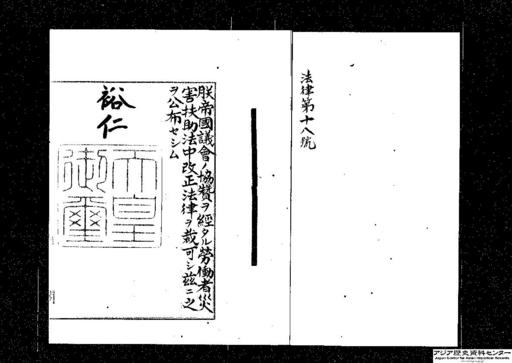 法律第十八號
朕帝國議會ノ協贊ヲ經タル勞働者災
害扶助法中改正法律ヲ裁可シ茲ニ之
ヲ公布セシム
裕仁
天皇
御璽
アジア歴史資料センター
Japan Center for Asian Historical Records